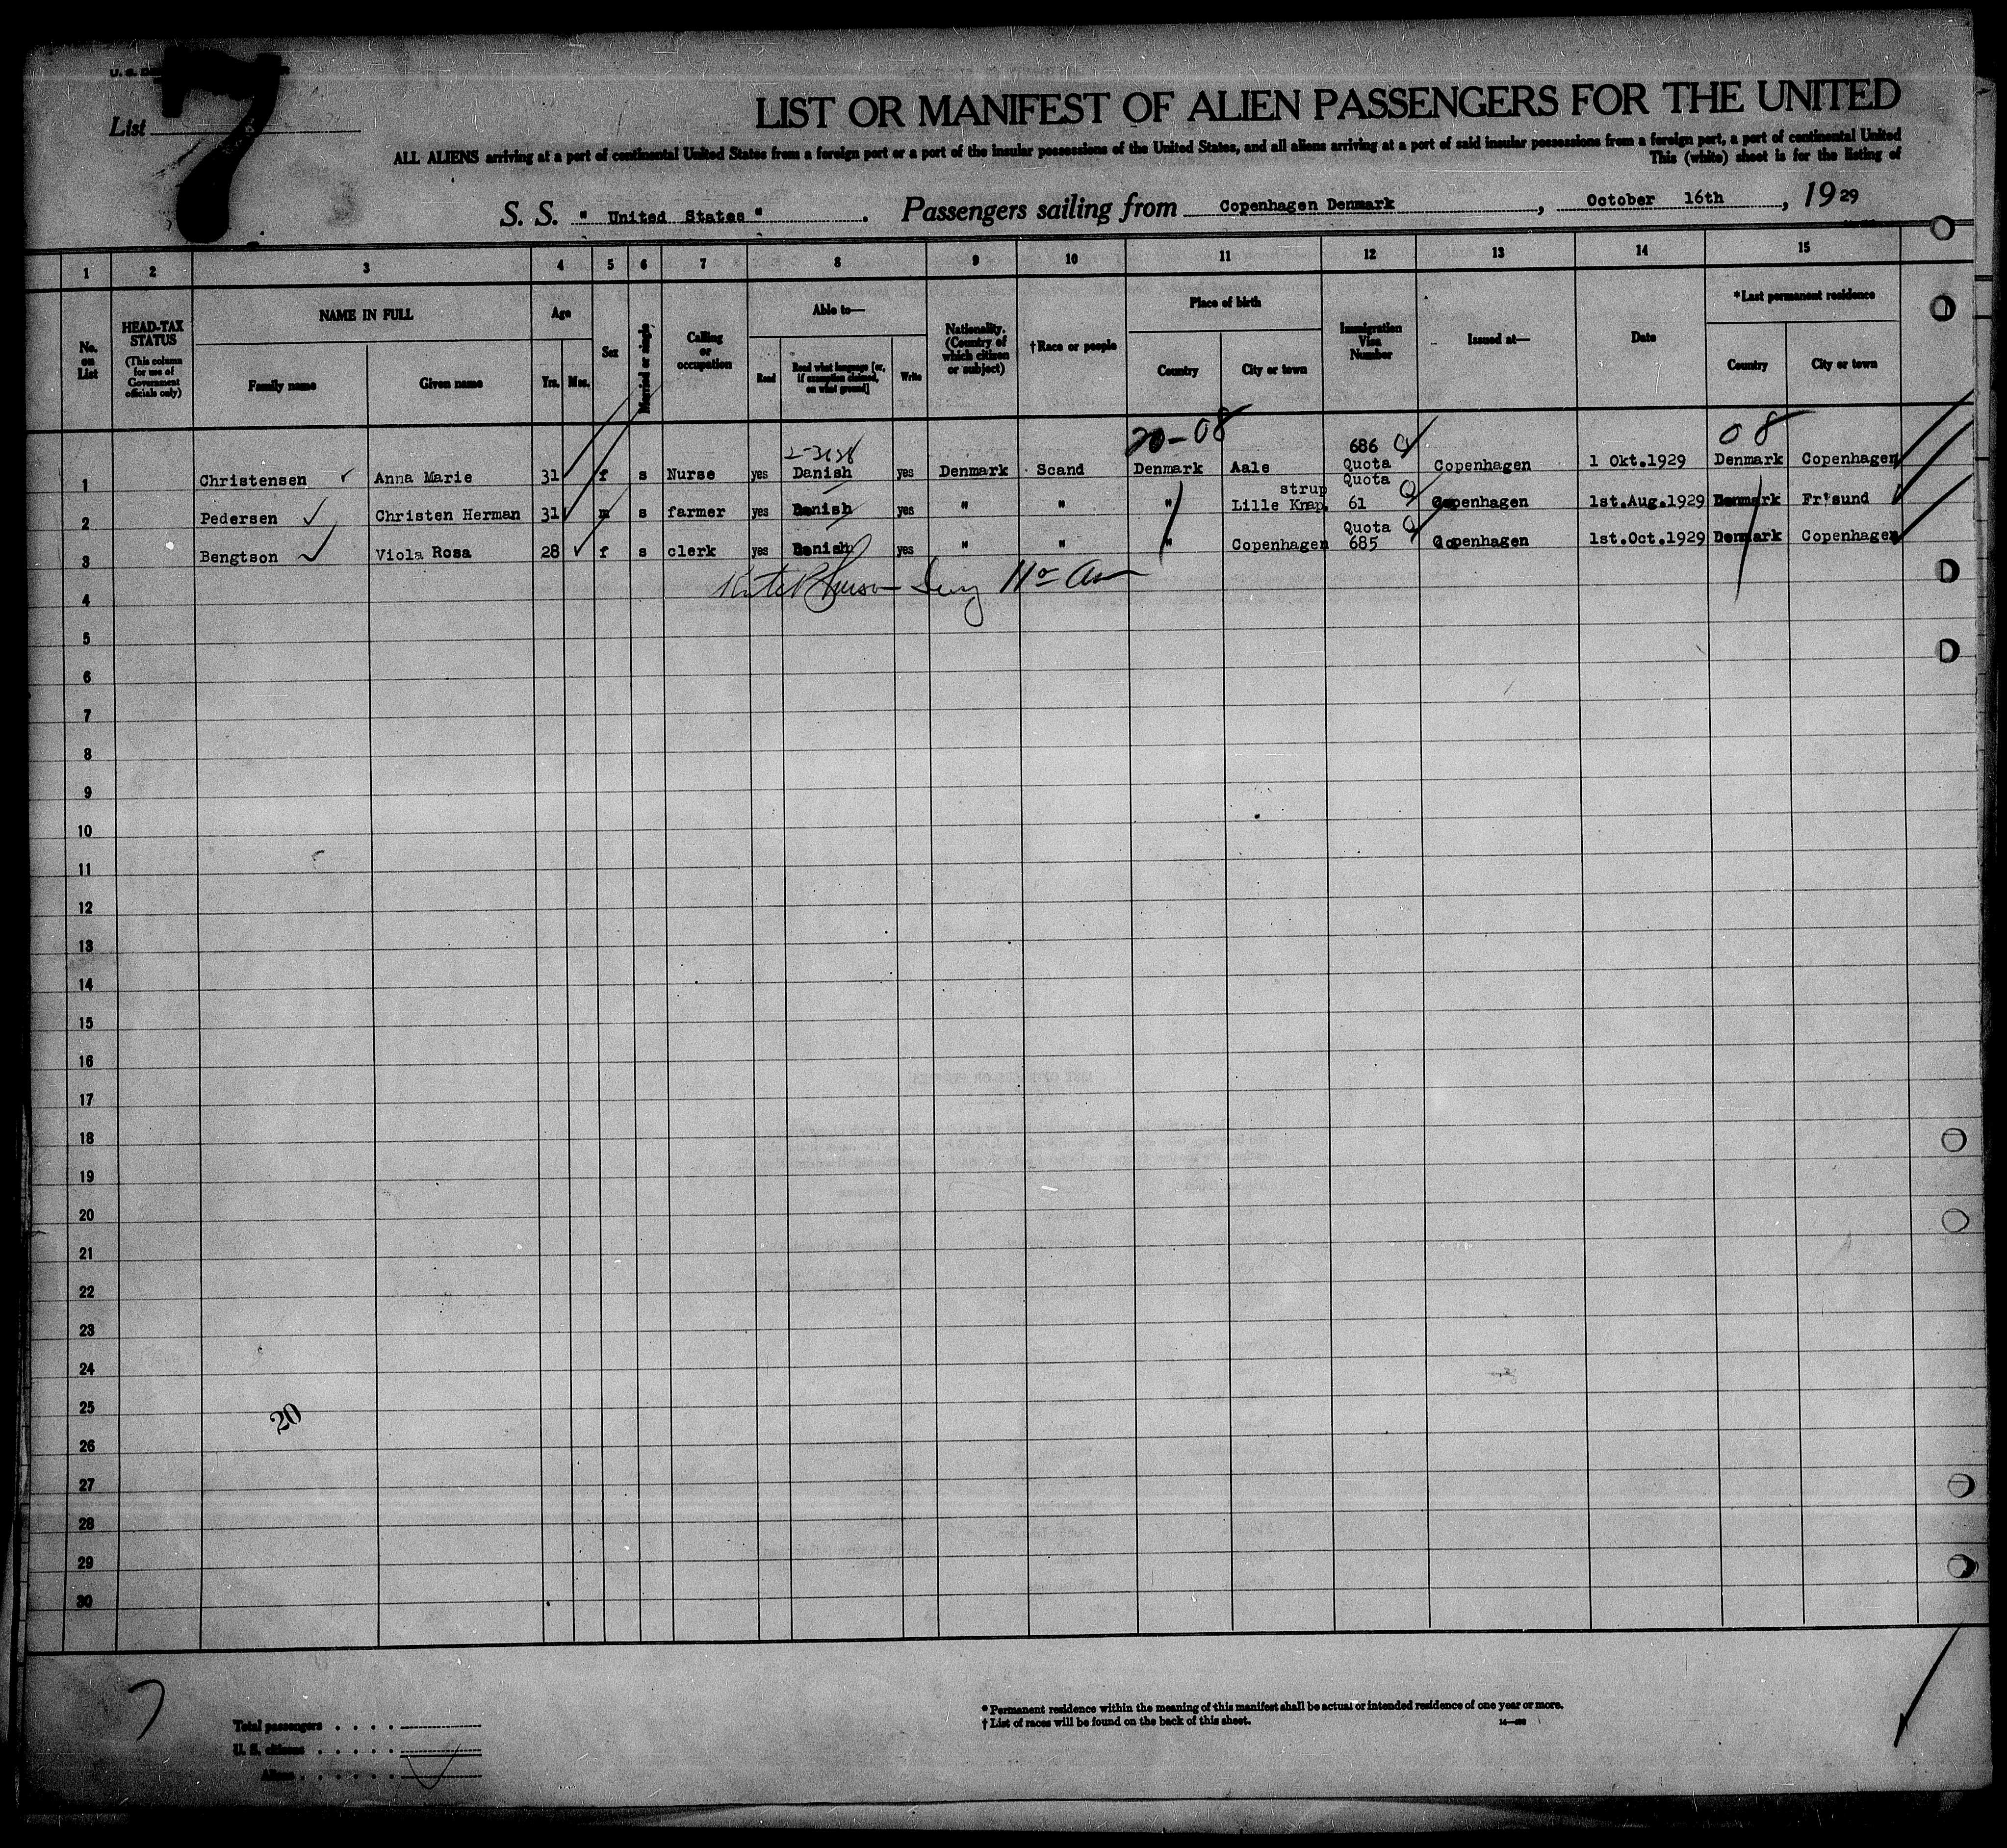 7
List
LIST OR MANIFEST OF ALIEN PASSENGERS FOR THE UNITED
ALL ALIENS arriving at a port of continental United States from a foreign port or a port of the insular possessions of the United States, and all aliens arriving at a port of said insular possessions from a foreign port, a port of continental United
This (white) sheet is for the listing of
S. S. " United States " . Passengers sailing from Copenhagen Denmark , October 16th , 19 29
1 2 3 4 5 6 7 8 9 10 11 12 13 14 15
No. on List
HEAD-TAX STATUS
(This column for use of Government officials only)
NAME IN FULL
Family name
Given name
Age
Yrs. Mos.
Sex
Married or single
Calling or occupation
Able to—
Read
Read what language [or, if exemption claimed, on what ground]
Write
Nationality. (Country of which citizen or subject)
†Race or people
Place of birth
Country
City or town
Immigration Visa Number
Issued at—
Date
*Last permanent residence
Country
City or town
20-08
08
686
1 Christensen Anna Marie 31 f s Nurse yes Danish yes Denmark Scand Denmark Aale Quota Copenhagen 1 Okt.1929 Denmark Copenhagen
strup Quota
2 Pedersen Christen Herman 31 m s farmer yes Danish yes " " " Lille Knap. 61 Copenhagen 1st.Aug.1929 Denmark Fr'sund
Quota
3 Bengtson Viola Rosa 28 f s clerk yes Danish yes " " " Copenhagen 685 Copenhagen 1st.Oct.1929 Denmark Copenhagen
4
5
6
7
8
9
10
11
12
13
14
15
16
17
18
19
20
21
22
23
24
25
20
26
27
28
29
30
7
Total passengers
U. S. citizens
Aliens
* Permanent residence within the meaning of this manifest shall be actual or intended residence of one year or more.
† List of races will be found on the back of this sheet.